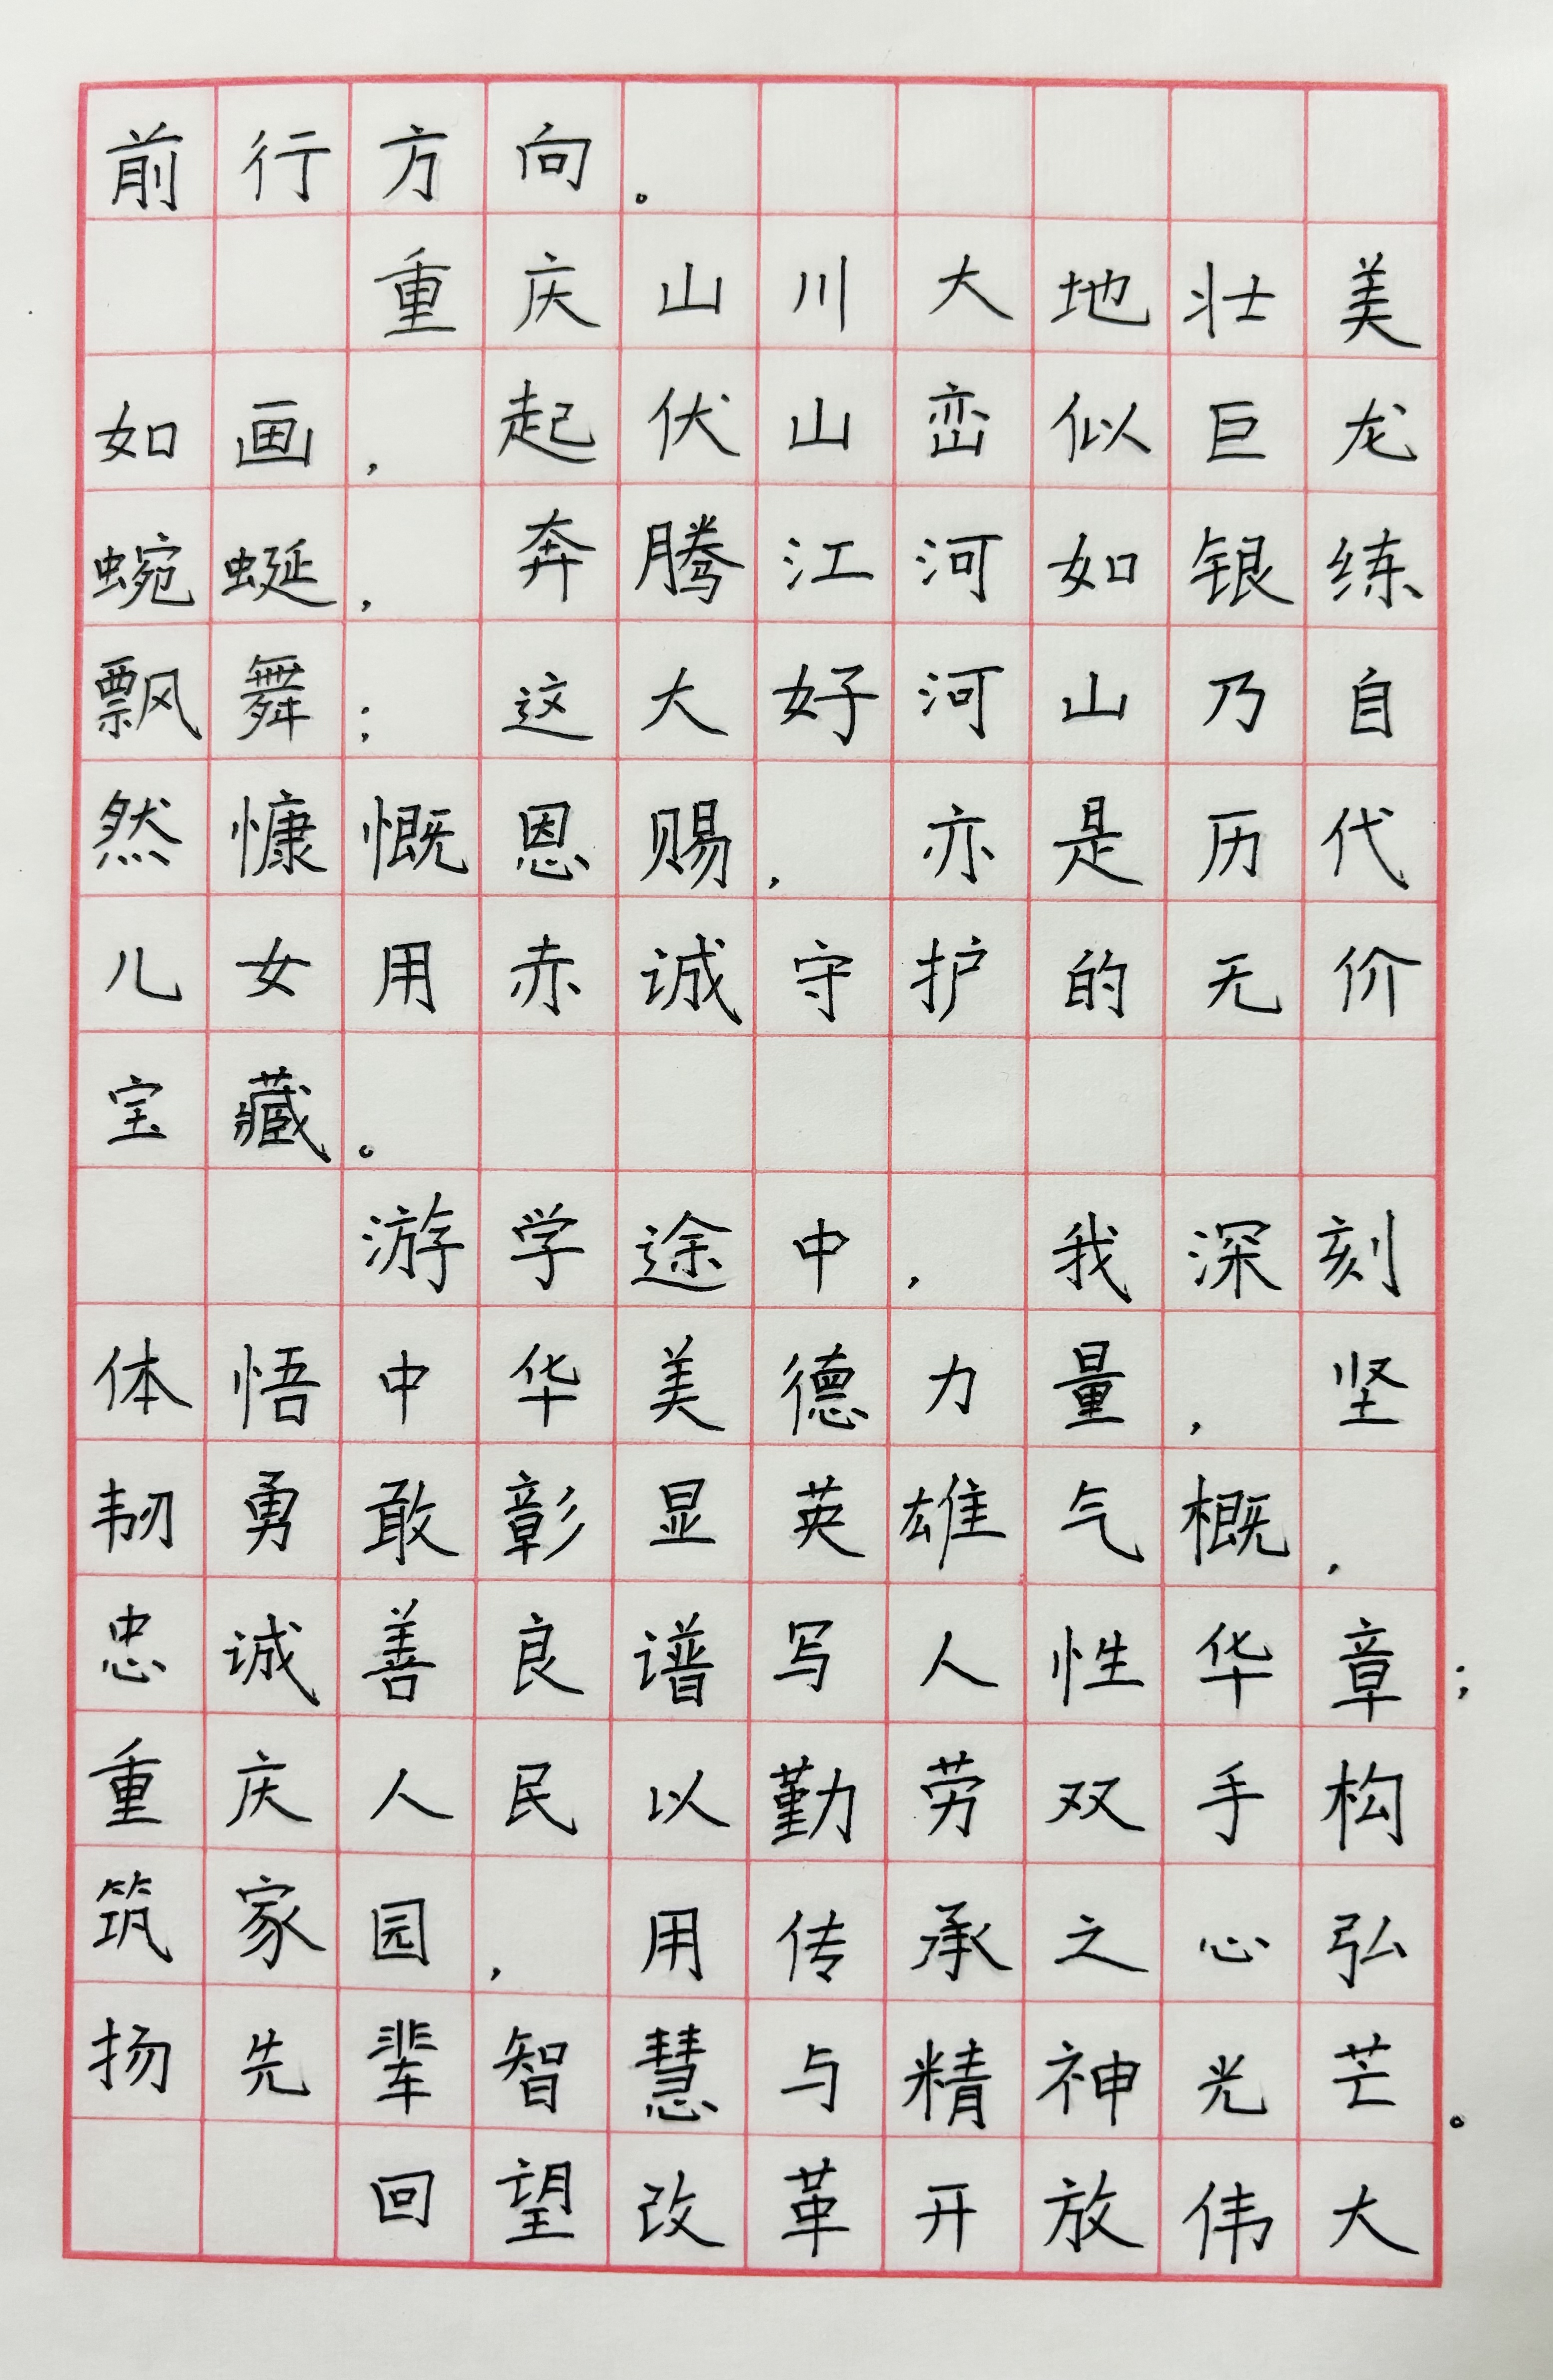 前行方向。
重庆山川大地壮美
如画，起伏山峦似巨龙
蜿蜒，奔腾江河如银练
飘舞；这大好河山乃自
然慷慨恩赐，亦是历代
儿女用赤诚守护的无价
宝藏。
游学途中，我深刻
体悟中华美德力量，坚
韧勇敢彰显英雄气概，
忠诚善良谱写人性华章；
重庆人民以勤劳双手构
筑家园，用传承之心弘
扬先辈智慧与精神光芒。
回望改革开放伟大